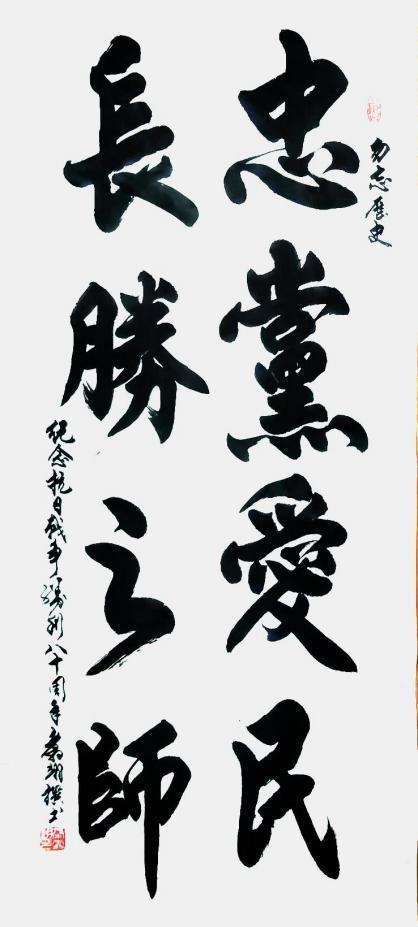 勿忘歷史
忠黨愛民
長勝之師
紀念抗日战爭勝利八十周年